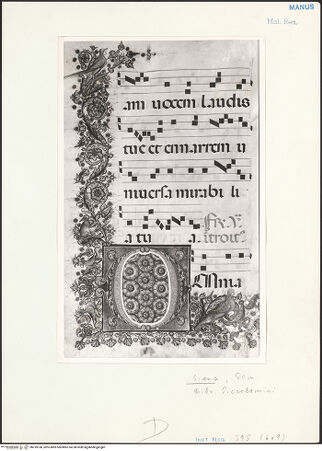 MANUS
Mal. Ren.
am uocem laudis
tue et enarrem u
niuersa mirabi li
a tu a. Fr. V. itroit.
Essma
Siena, Dom
Bibl. Piccolomini
D
INST. NEG. 595 (6x9)